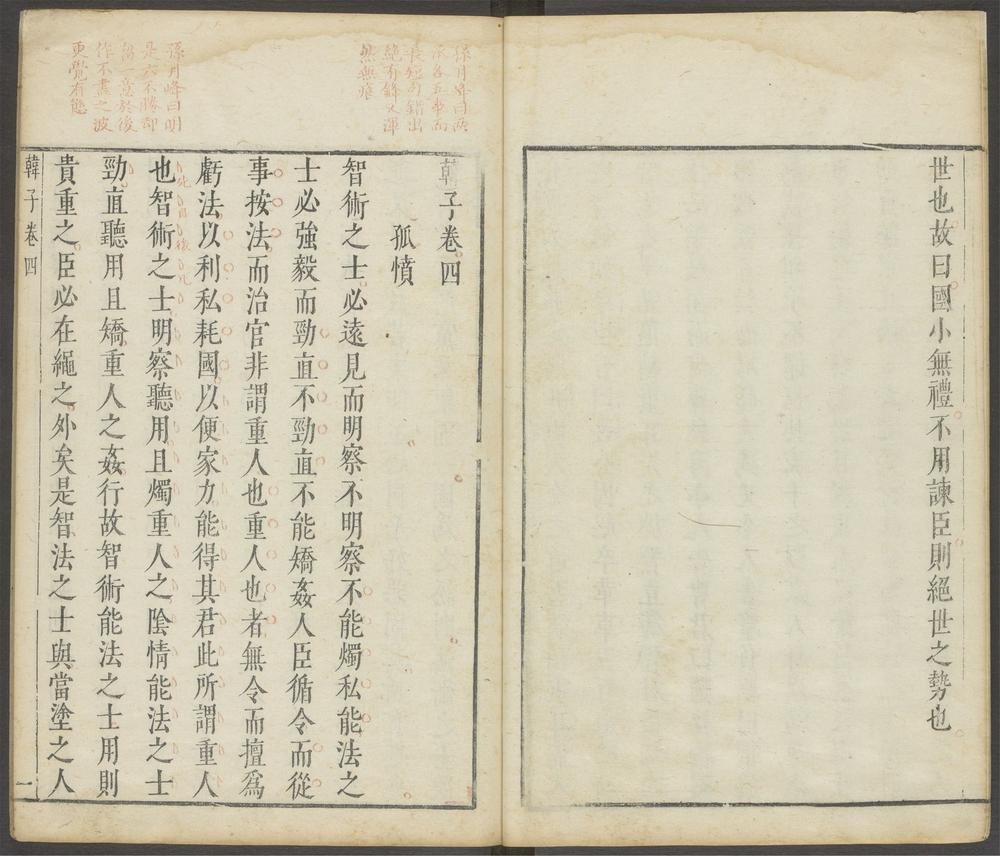 世也故曰國小無禮不用諫臣則絕世之勢也
孫月峰曰兩
股各五事而
長短句錯出
絕有鋒又渾
然無痕
韓子卷四
孤憤
智術之士必遠見而明察不明察不能燭私能法之
士必強毅而勁直不勁直不能矯姦人臣循令而從
事按法而治官非謂重人也重人也者無令而擅爲
虧法以利私耗國以便家力能得其君此所謂重人
也智術之士明察聽用且燭重人之陰情能法之士
勁直聽用且矯重人之姦行故智術能法之士用則
貴重之臣必在繩之外矣是智法之士與當塗之人
孫月峰曰明
是六不勝却
留一意於後
作不盡之波
更覺有態
韓子卷四
一